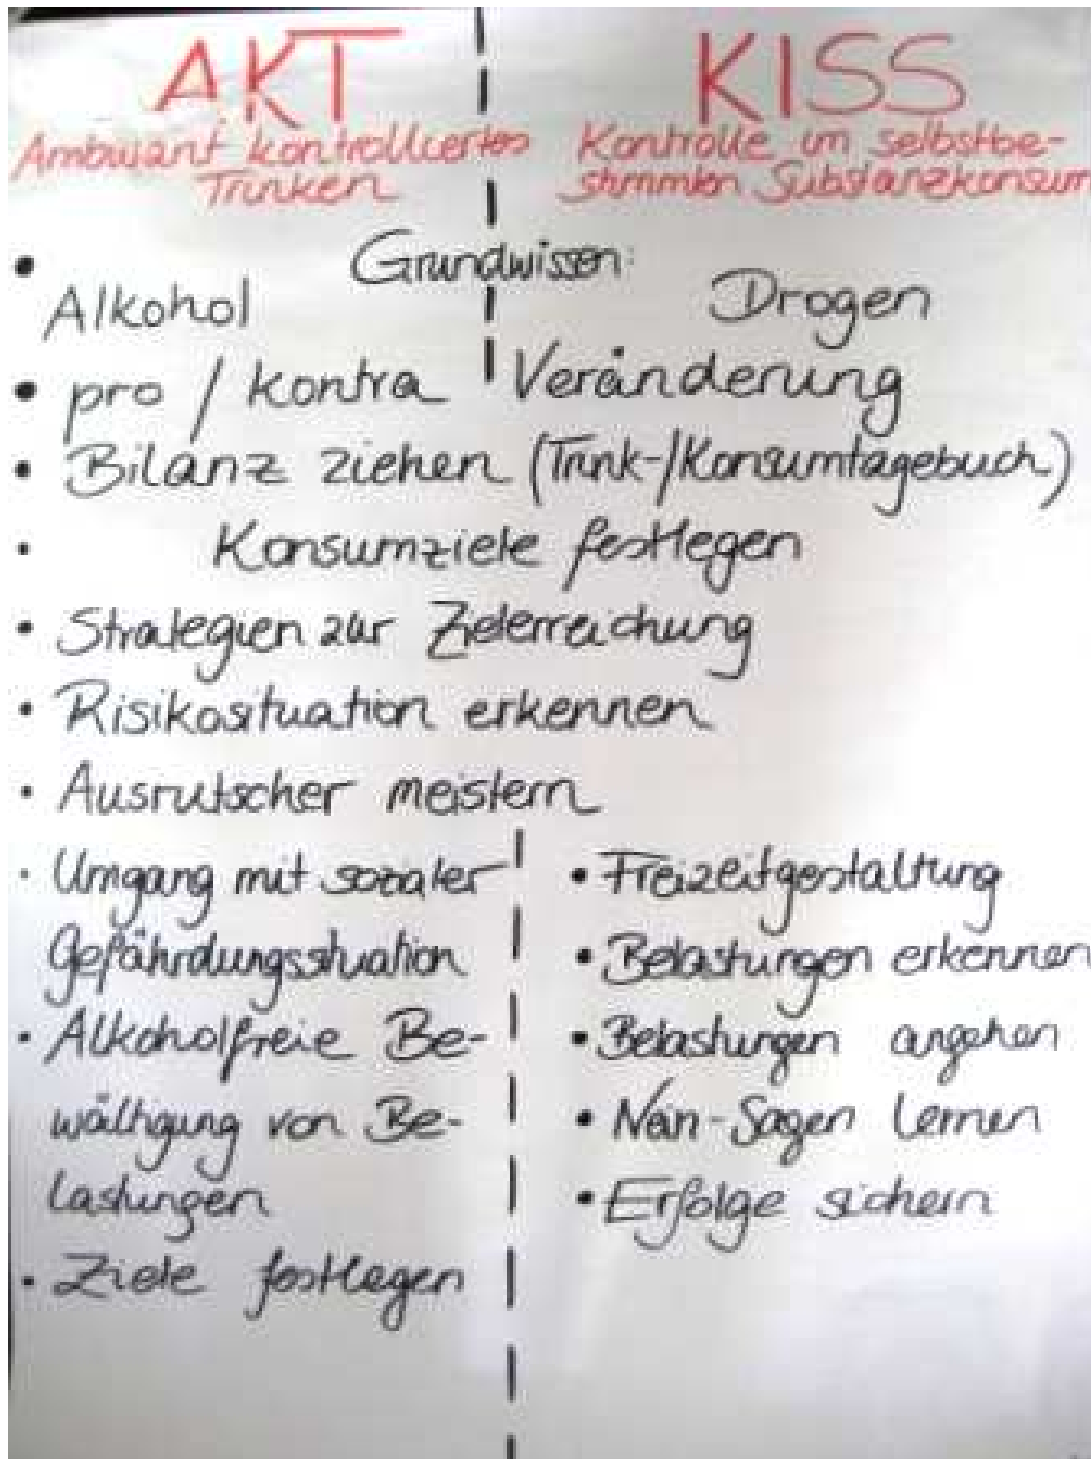 AKT
Ambulant kontrolliertes
Trinken
KISS
Kontrolle im selbstbe-
stimmten Substanzkonsum
• Grundwissen:
Alkohol
Drogen
• pro / kontra Veränderung
• Bilanz ziehen (Trink-/Konsumtagebuch)
• Konsumziele festlegen
• Strategien zur Zielerreichung
• Risikosituation erkennen
• Ausrutscher meistern
• Umgang mit sozialer
Gefährdungssituation
• Alkoholfreie Be-
wältigung von Be-
lastungen
• Ziele festlegen
• Freizeitgestaltung
• Belastungen erkennen
• Belastungen angehen
• Nein-Sagen lernen
• Erfolge sichern